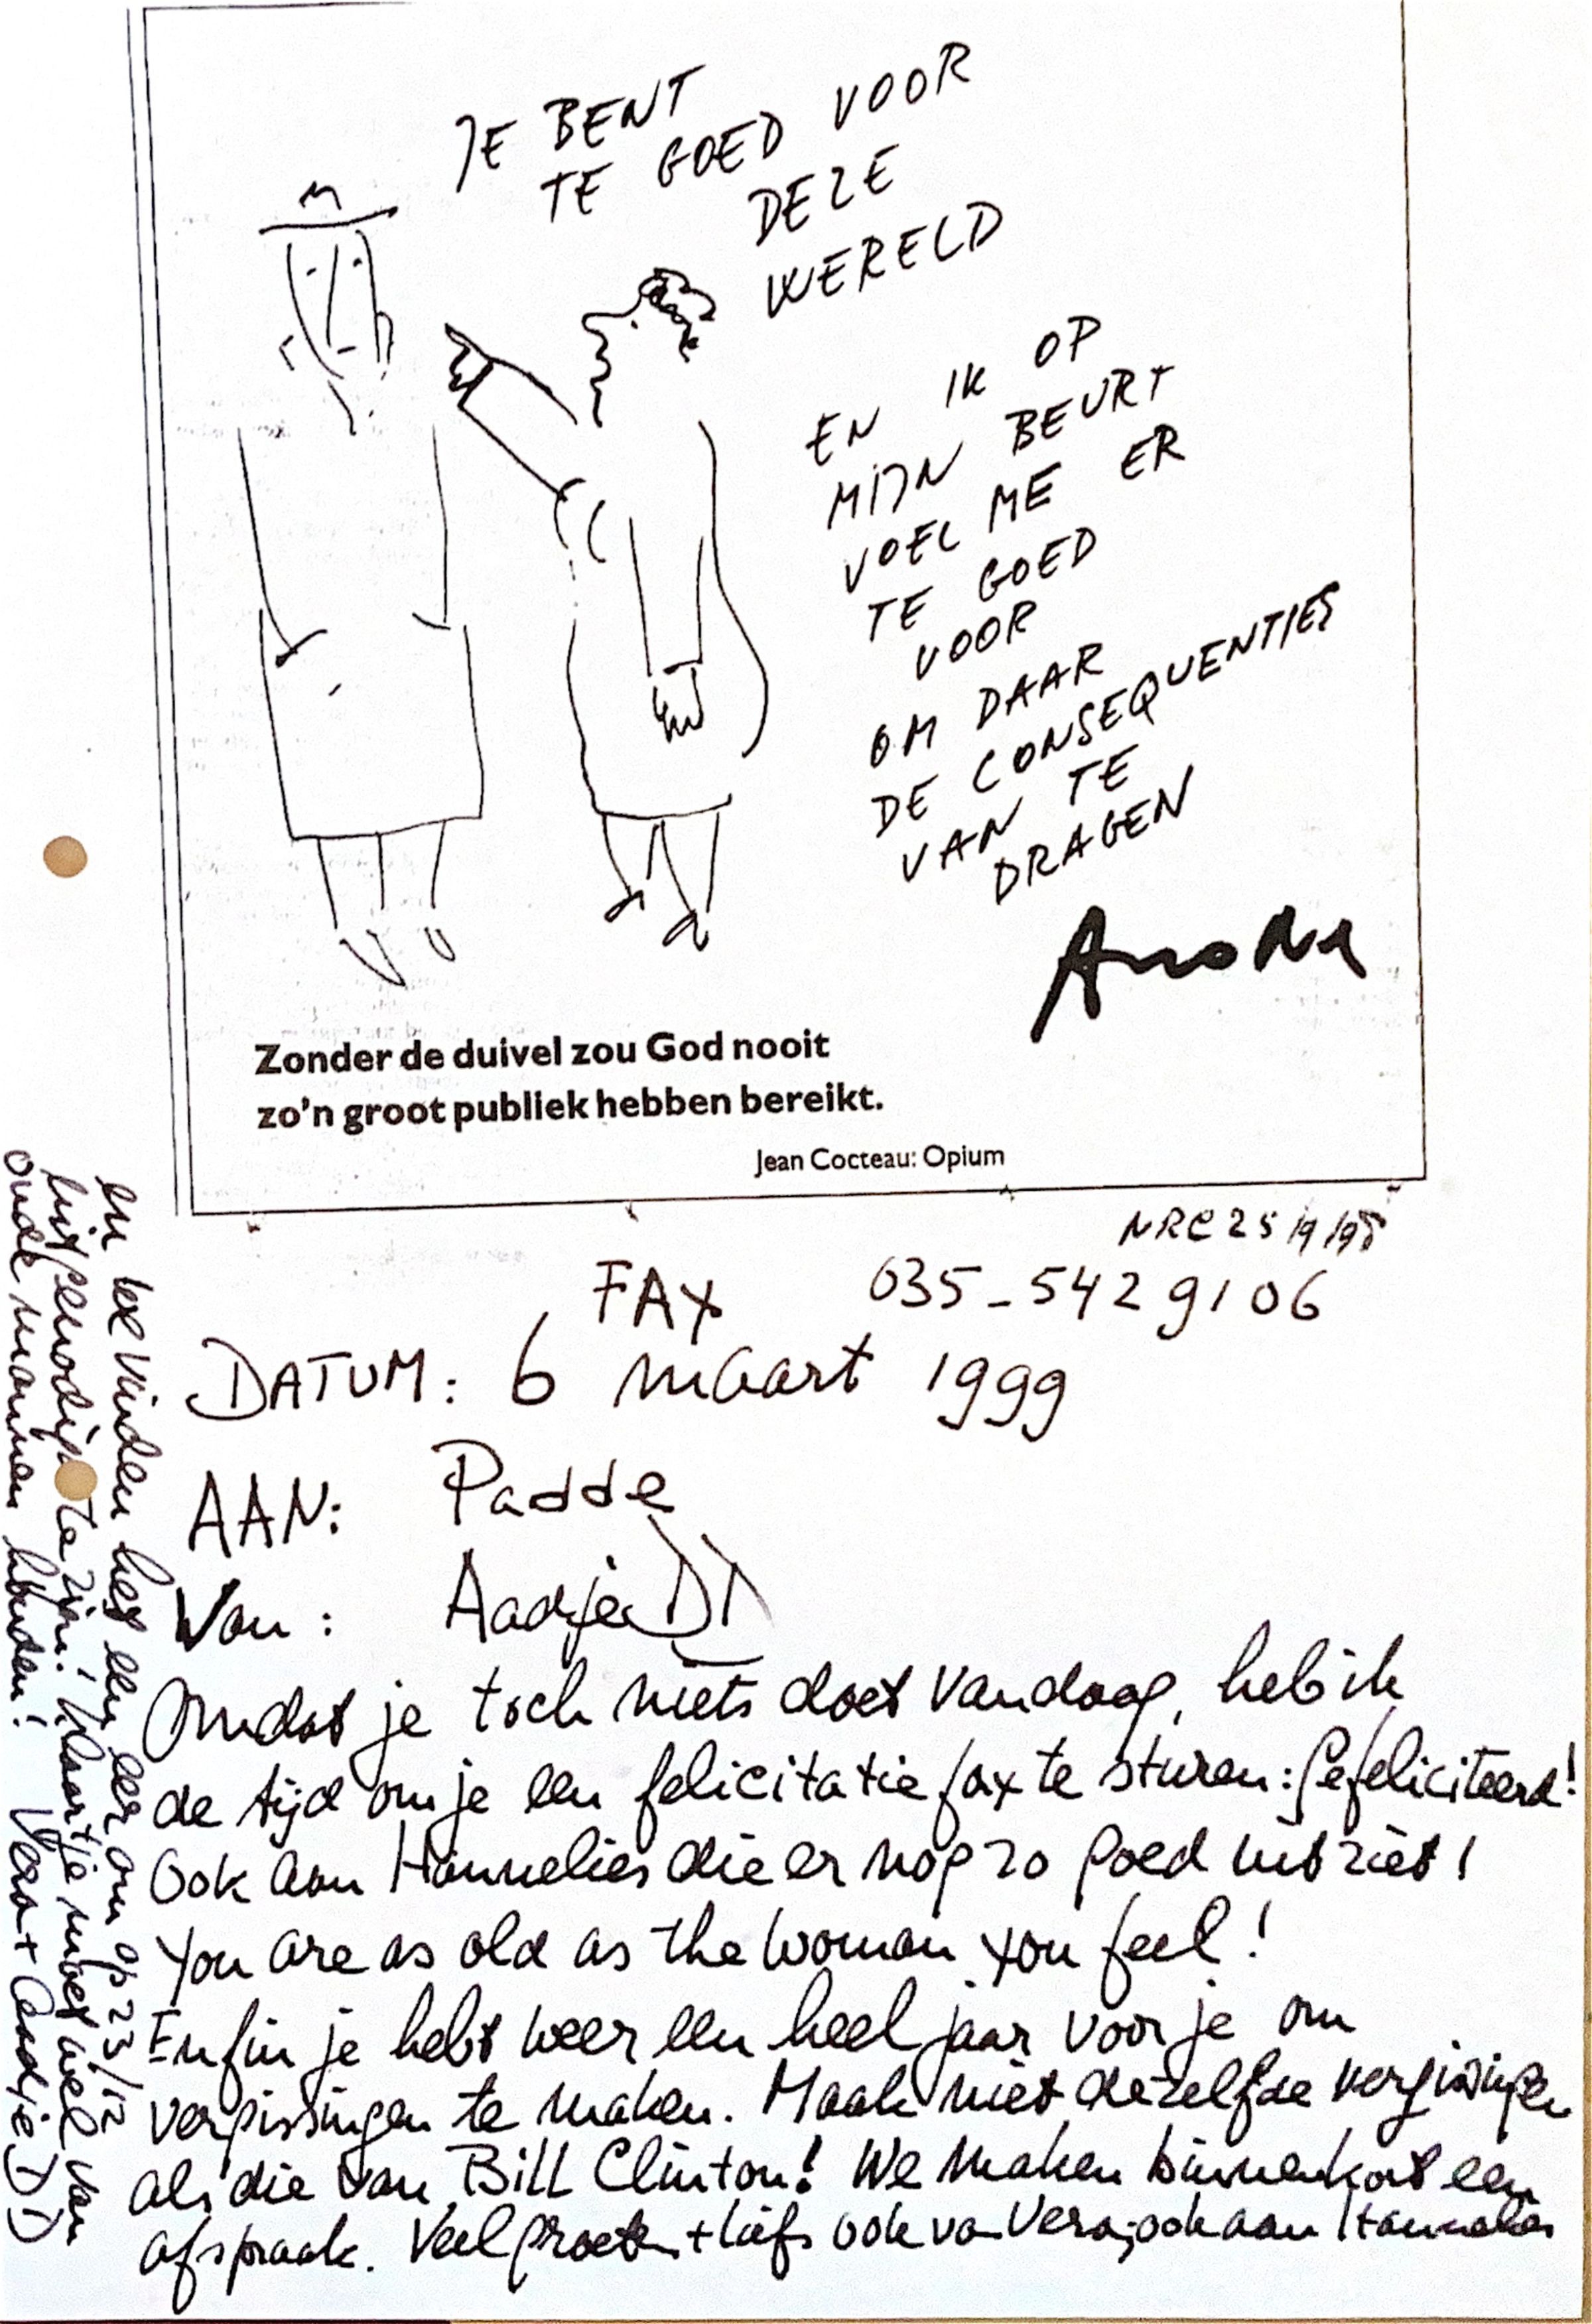 JE BENT
TE GOED VOOR
DEZE
WERELD
EN IK OP
MIJN BEURT
VOEL ME ER
TE GOED
VOOR
OM DAAR
DE CONSEQUENTIES
VAN TE
DRAGEN
Zonder de duivel zou God nooit
zo'n groot publiek hebben bereikt.
Jean Cocteau: Opium
NRC 25/9/98
FAX 035-5429106
DATUM: 6 maart 1999
AAN: Padde
Van: Aadje DD
Omdat je toch niets doet vandaag, heb ik
de tijd om je een felicitatie fax te sturen: Gefeliciteerd!
Ook aan Hannelies die er nog zo goed uitziet!
You are as old as the woman you feel!
Enfin je hebt weer een heel jaar voor je om
vergissingen te maken. Maak niet dezelfde vergissingen
als die van Bill Clinton! We maken binnenkort een
afspraak. Veel groeten + liefs ook van Vera, ook aan Hannelies
en we vinden het een eer om op 23/12
uitgenodigd te zijn! Klaartje moet wel van
oude mannen houden! Vera + Aadje DD